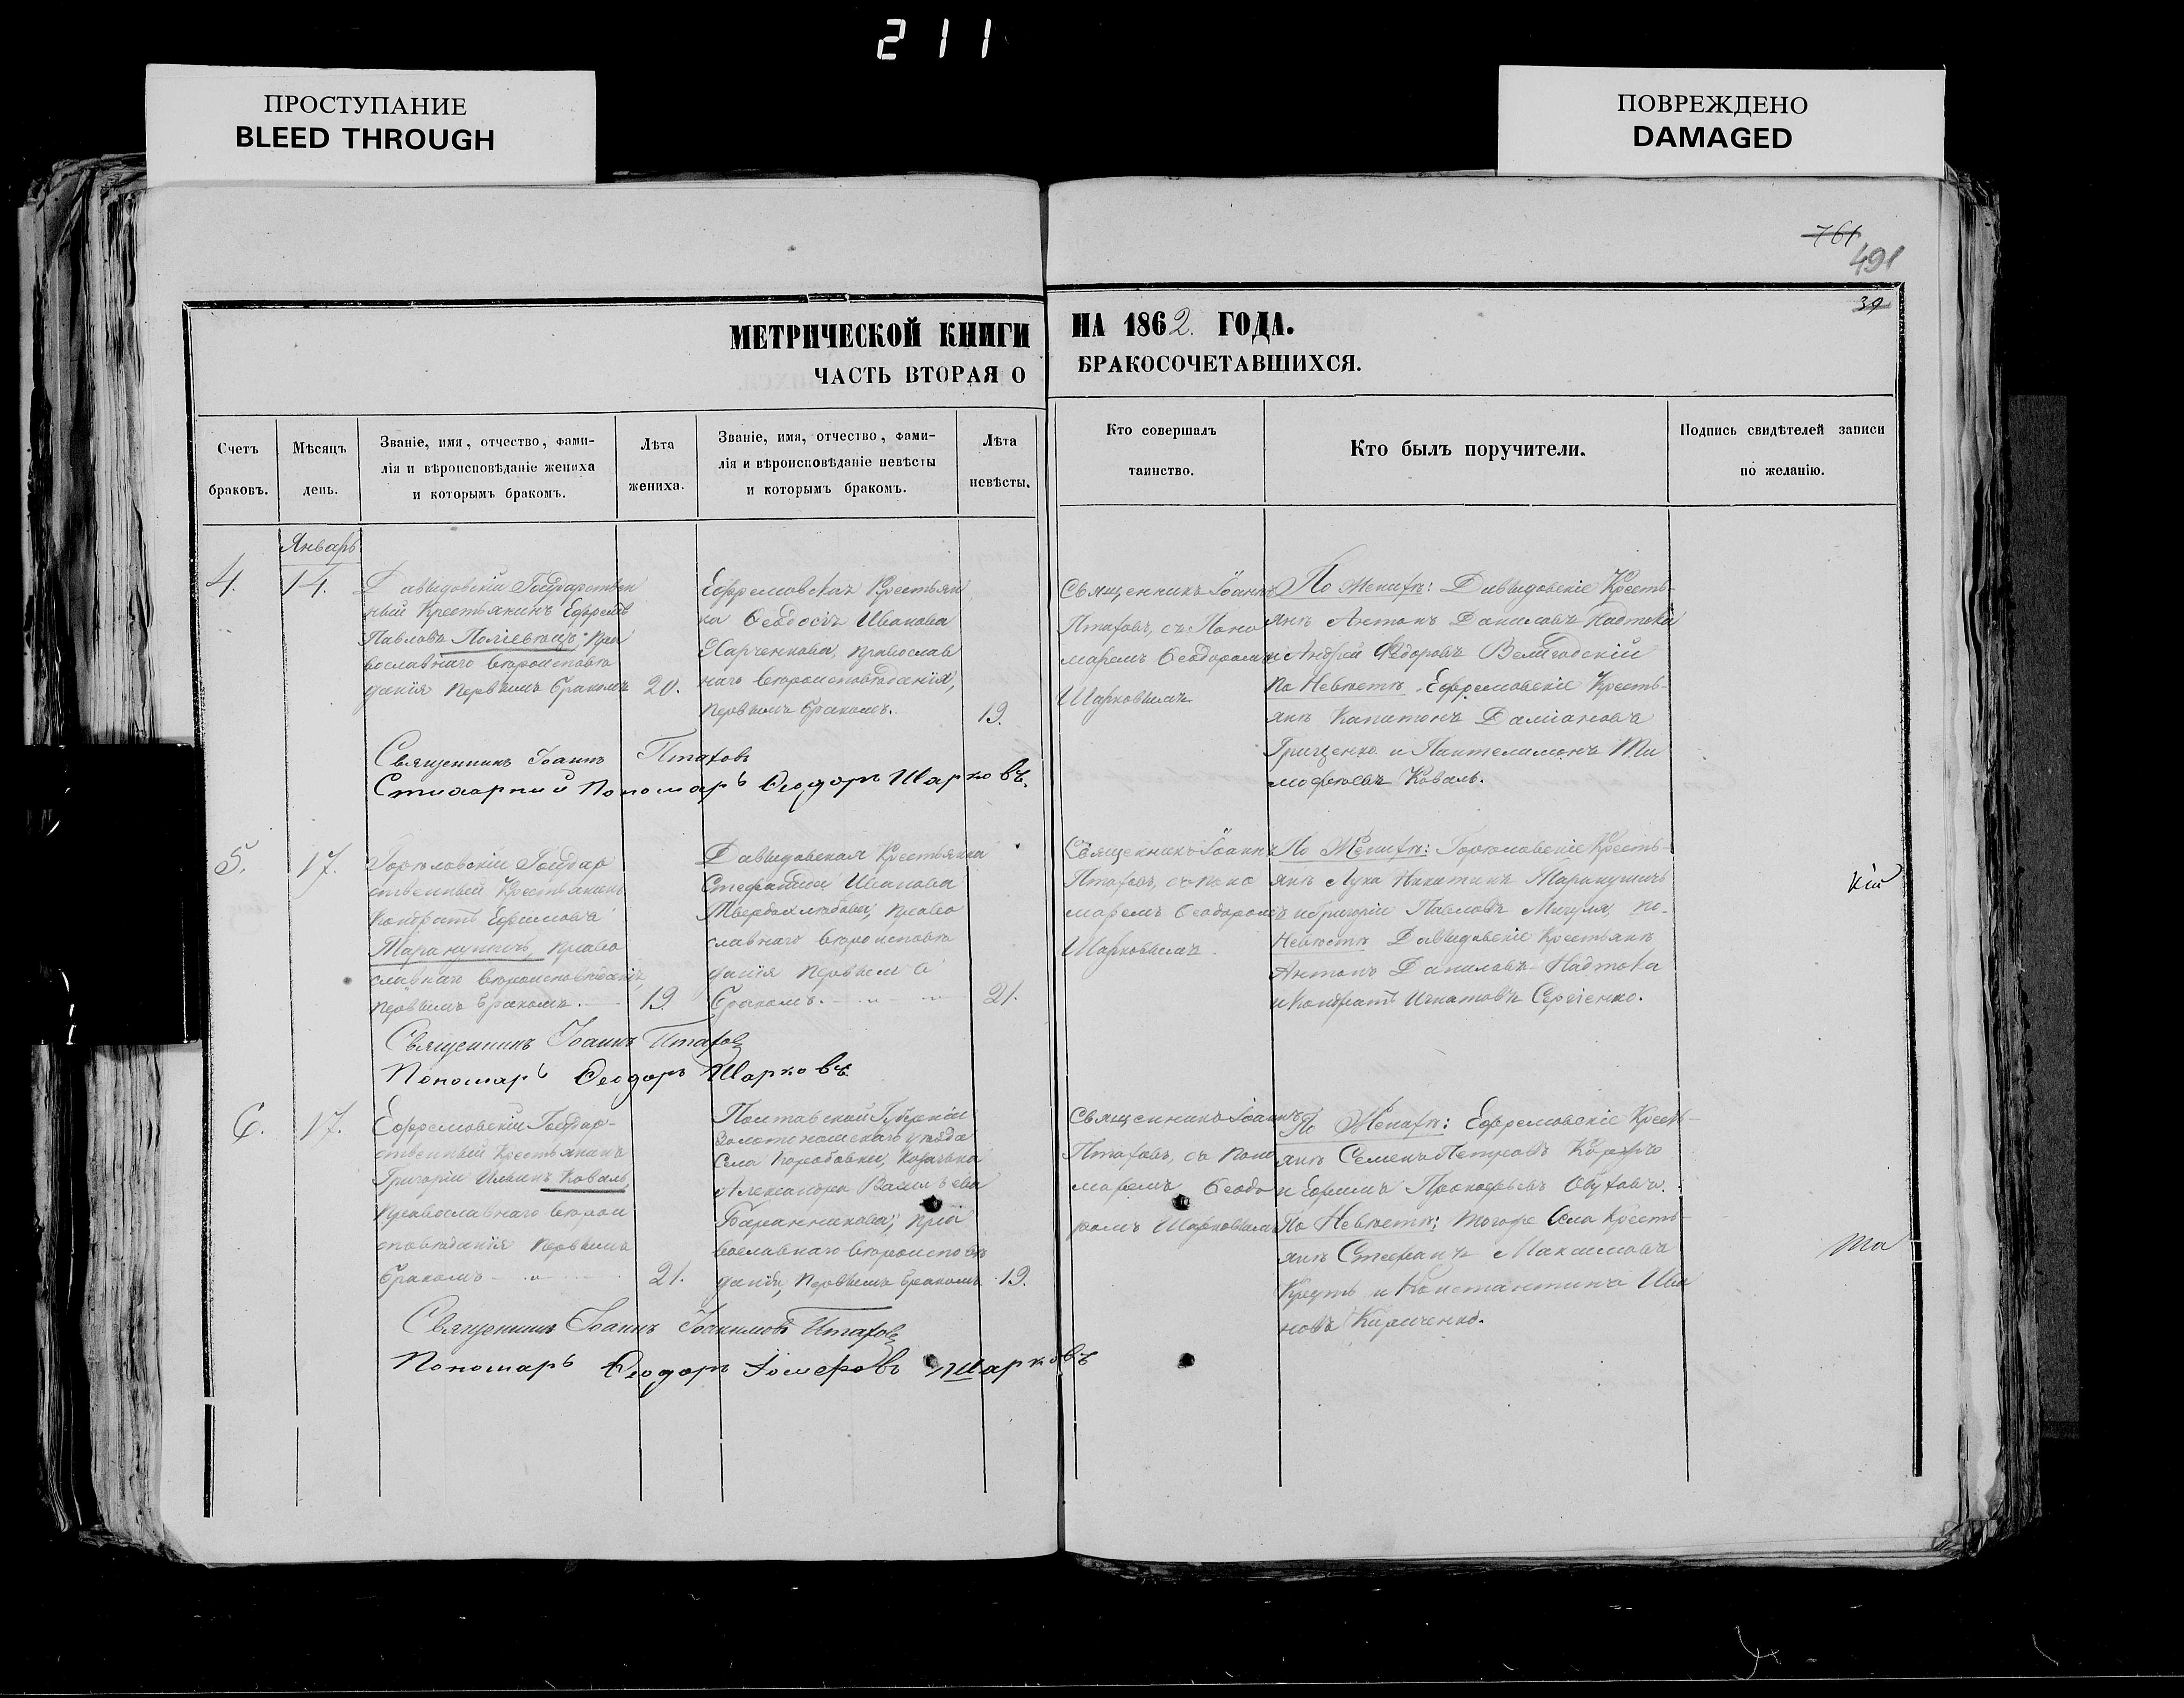 211
ПРОСТУПАНИЕ
BLEED THROUGH
ПОВРЕЖДЕНО
DAMAGED
761
491
39
МЕТРИЧЕСКОЙ КНИГИ НА 1862 ГОДА.
ЧАСТЬ ВТОРАЯ О БРАКОСОЧЕТАВШИХСЯ.
Счетъ
браковъ.
Мѣсяцъ
день.
Званіе, имя, отчество, фами-
лія и вѣроисповѣданіе жениха
и которымъ бракомъ.
Лѣта
жениха.
Званіе, имя, отчество, фами-
лія и вѣроисповѣданіе невѣсты
и которымъ бракомъ.
Лѣта
невѣсты.
Кто совершалъ
таинство.
Кто былъ поручители.
Подпись свидѣтелей записи
по желанію.
Январь
4.
14.
Давыдовскій Государствен
ный Крестьянинъ Ефремъ
Павловъ Пра
вославнаго вѣроисповѣ
данія первымъ бракомъ
20.
Ефремовская Крестьян
ка Ѳеодосія Иванова
Харченкова, православ
наго вѣроисповѣданія,
первымъ бракомъ.
19.
Священникъ Іоаннъ
Птаховъ, съ Поно
маремъ Ѳеодоромъ
Шарковымъ.
По Женихѣ: Давыдовскіе Кресть-
янѣ Антонъ Даниловъ Надтока
и Андрей Ѳедоровъ
По Невѣстѣ Ефремовскіе Кресть-
янѣ Капитонъ Даміановъ
Грищенко и Пантелимонъ Ти
мофѣевъ Коваль.
Священникъ Іоаннъ Птаховъ
Стихарный Пономарь Ѳеодоръ Шарковъ.
5.
17.
Горѣловскій Государ
ственный Крестьянинъ
Кондратъ Ефимовъ
Таранушичъ, право
славнаго вѣроисповѣданія,
первымъ бракомъ.
19.
Давыдовская Крестьянка
Стефанида Иванова
Твердохлѣбова, право
славнаго вѣроисповѣ
данія первымъ
бракомъ.
21.
Священникъ Іоаннъ
Птаховъ, съ поно
маремъ Ѳеодоромъ
Шарковымъ.
По Женихѣ: Горѣловскіе Кресть-
янѣ Лука Никитинъ Таранушичъ
и Григорій Павловъ Мичуля, по
Невѣстѣ Давыдовскіе Крестьянѣ
Антонъ Даниловъ Надтока
и Кондратъ Игнатовъ Сергіенко.
кій
Священникъ Іоаннъ Птаховъ
Пономарь Ѳеодоръ Шарковъ.
6.
17.
Ефремовскій Государ-
ственный Крестьянинъ
Григорій Ильинъ Коваль,
православнаго вѣрои
сповѣданія первымъ
бракомъ
21.
Полтавской Губерніи
Золотоношскаго уѣзда
Села Коробовки, Козачька
Александра Васильева
Баранникова, пра
вославнаго вѣроисповѣ
данія, первымъ бракомъ
19.
Священникъ Іоаннъ
Птаховъ, съ Поно
маремъ Ѳеодо
ромъ Шарковымъ
По Женихѣ: Ефремовскіе Кресть-
янѣ Семенъ Петровъ
и Ефимъ Прокофьевъ Обуховъ.
По Невѣстѣ: тогоже Села Кресть-
янѣ Стефанъ Максимовъ
и Константинъ Ива
новъ Кириченко.
та
Священникъ Іоаннъ Іоакимовъ Птаховъ
Пономарь Ѳеодоръ Шарковъ